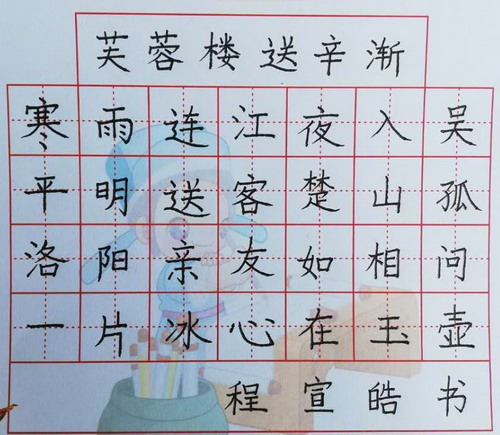 芙蓉楼送辛渐
寒雨连江夜入吴
平明送客楚山孤
洛阳亲友如相问
一片冰心在玉壶
程宣皓书